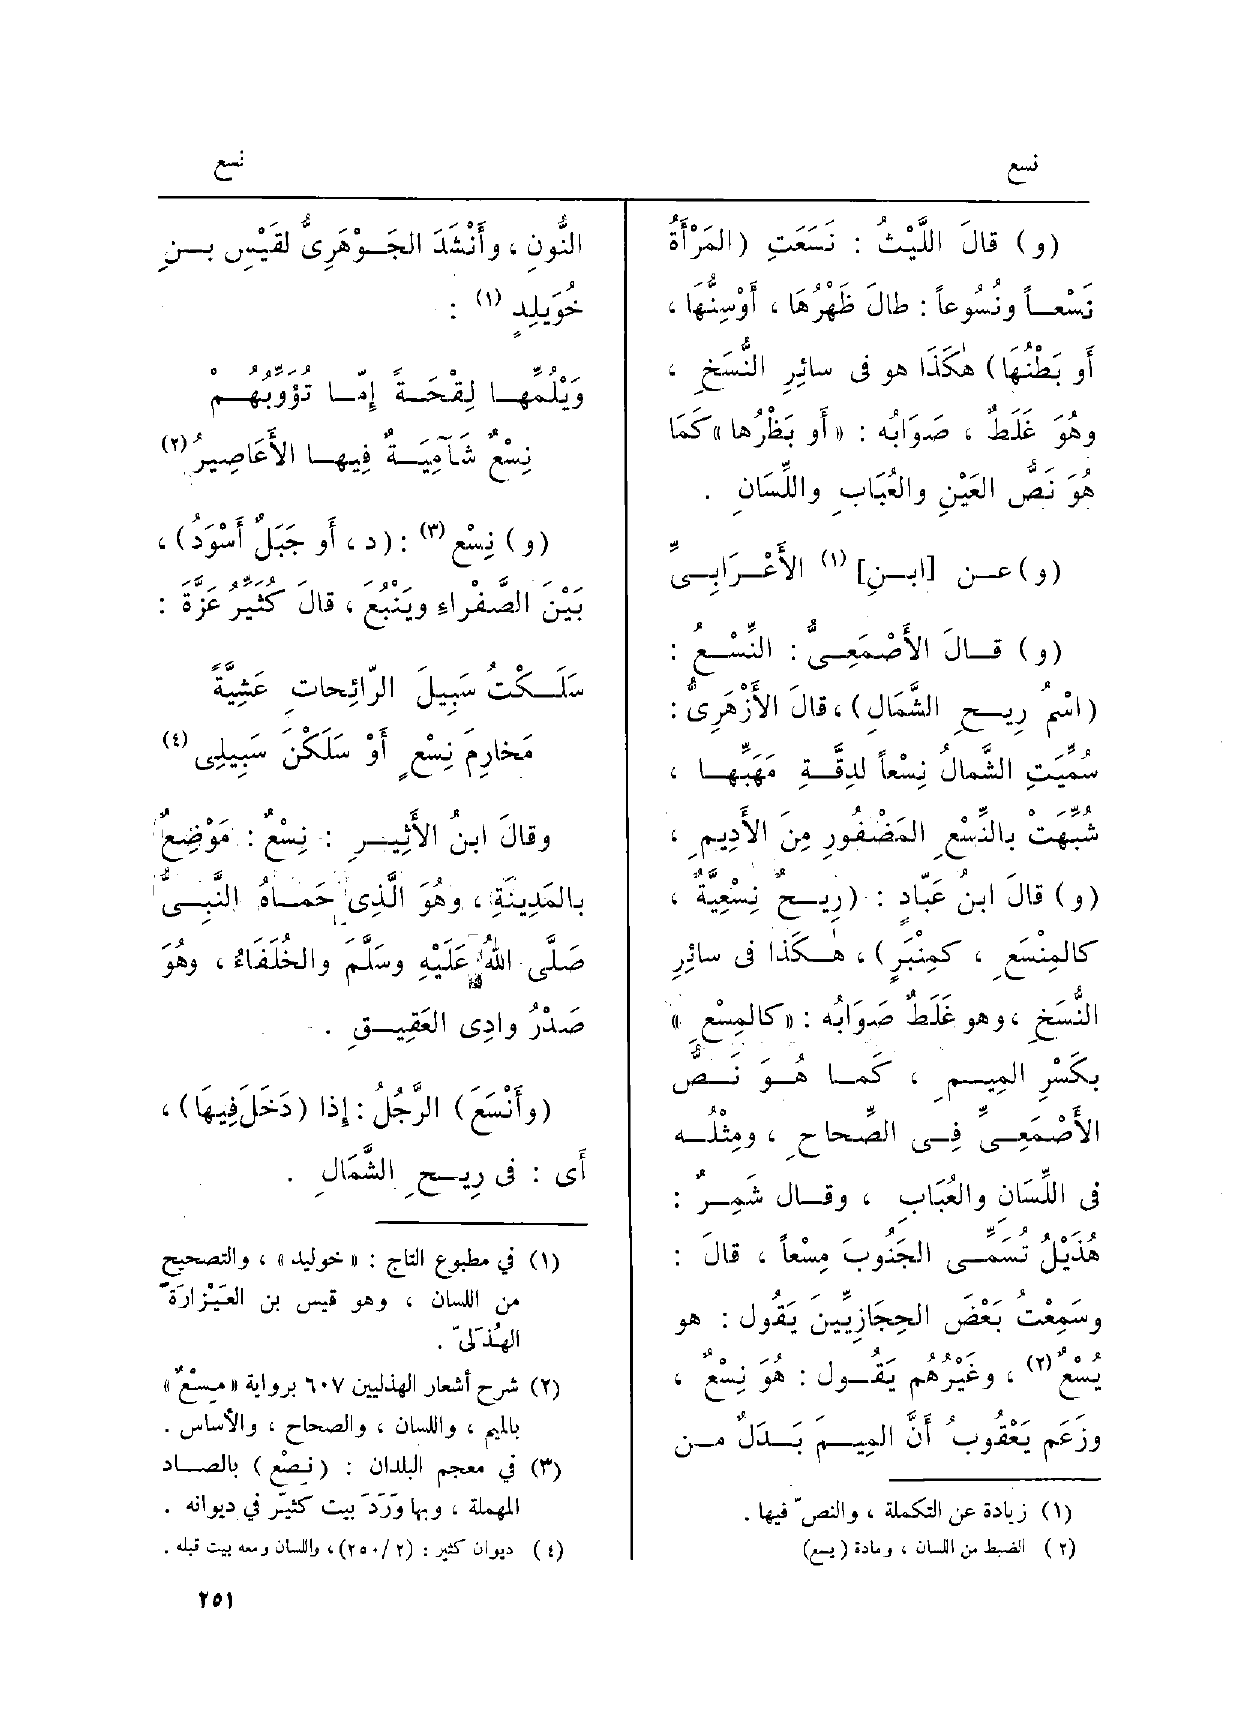 نسع
نسع
(و) قالَ اللَّيْثُ : نَسَعَتِ (المَرْأَةُ
نَسْعاً ونُسُوعاً : طالَ ظَهْرُهَا ، أَوْسِنُّهَا ،
أو بَطْنُهَا) هٰكَذَا هو فى سائِرِ النُّسَخِ ،
وهُوَ غَلَطٌ ، صَوَابُه : «أو بَظْرُها» كَمَا
هُوَ نَصُّ العَيْنِ والعُبَابِ واللِّسَانِ .
(و) عن [ابن] (١) الأَعْرَابِىِّ
(و) قالَ الأَصْمَعِىُّ : النِّسْعُ :
(اسْمُ رِيحِ الشَّمَالِ) ، قالَ الأَزْهَرِىُّ :
سُمِّيَتِ الشَّمالُ نِسْعاً لدِقَّةِ مَهَبِّها ،
شُبِّهَتْ بالنِّسْعِ المَضْفُورِ مِنَ الأَدِيمِ ،
(و) قالَ ابنُ عَبّادٍ : (رِيحٌ نِسْعِيَّةٌ ،
كالمِنْسَعِ ، كمِنْبَرٍ) ، هٰكَذا فى سائِرِ
النُّسَخِ ، وهو غَلَطٌ صَوَابُه : «كالمِسْعِ»
بكَسْرِ المِيمِ ، كَما هُوَ نَصُّ
الأَصْمَعِىِّ فِى الصِّحاحِ ، ومِثْلُه
فى اللِّسَانِ والعُبَابِ ، وقال شَمِرٌ :
هُذَيْلٌ تُسَمِّى الجَنُوبَ مِسْعاً ، قالَ :
وسَمِعْتُ بَعْضَ الحِجَازِيِّينَ يَقُولُ : هو
يُسْعٌ (٢) ، وغَيْرُهُم يَقُول : هُوَ نِسْعٌ ،
وزَعَم يَعْقُوبُ أَنَّ المِيمَ بَدَلٌ من
(١) زيادة عن التكملة ، والنصّ فيها .
(٢) الضبط من اللسان ، ومادة (يسع)
النُّونِ ، وأَنْشَدَ الجَوْهَرِىُّ لقَيْسِ بنِ
خُوَيلِدٍ (١) :
وَيْلُمِّها لِقْحَةً إِمّا تؤَوِّبُهُمْ
نِسْعٌ شَآمِيَةٌ فِيها الأَعَاصِيرُ (٢)
(و) نِسْع (٣) : (د ، أو جَبَلٌ أَسْوَدُ) ،
بَيْنَ الصَّفْراءِ ويَنْبُعَ ، قالَ كُثَيِّرُ عَزَّةَ :
سَلَكْتُ سَبِيلَ الرّائِحاتِ عَشِيَّةً
مَخارِمَ نِسْعٍ أَوْ سَلَكْنَ سَبِيلِى (٤)
وقالَ ابنُ الأَثِيرِ : نِسْعٌ : مَوْضِعٌ
بالمَدِينَةِ ، وهُوَ الَّذِى حَمَاهُ النَّبِىُّ
صَلَّى اللهُ عَلَيْهِ وسَلَّمَ والخُلَفَاءُ ، وهُوَ
صَدْرُ وادِى العَقِيقِ .
(وأَنْسَعَ) الرَّجُلُ : إذا (دَخَلَ فِيهَا) ،
أَى : فى رِيحِ الشَّمَالِ .
(١) في مطبوع التاج : «خوليد» ، والتصحيح
من اللسان ، وهو قيس بن العَيْزارَة
الهُذَلىّ .
(٢) شرح أشعار الهذليين ٦٠٧ برواية «مِسْعٌ»
بالميم ، واللسان ، والصحاح ، والأساس .
(٣) في معجم البلدان : (نِصْع) بالصاد
المهملة ، وبها وَرَدَ بيت كثيّر في ديوانه .
(٤) ديوان كثير : (٢ /٢٥٠) ، واللسان ومعه بيت قبله .
٢٥١